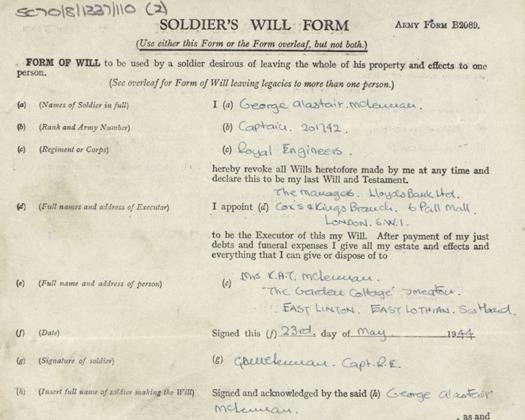 SC70/8/1237/110 (2)
SOLDIER'S WILL FORM ARMY FORM B2089.
(Use either this Form or the Form overleaf, but not both.)
FORM OF WILL to be used by a soldier desirous of leaving the whole of his property and effects to one
person.
(See overleaf for Form of Will leaving legacies to more than one person.)
(a) (Names of Soldier in full) I (a) George Alastair McLennan.
(b) (Rank and Army Number) (b) Captain. 201742.
(c) (Regiment or Corps) (c) Royal Engineers.
hereby revoke all Wills heretofore made by me at any time and
declare this to be my last Will and Testament.
The Manager. Lloyds Bank Ltd.
(d) (Full names and address of Executor) I appoint (d) Cox's & Kings Branch. 6 Pall Mall.
LONDON. S.W.1.
to be the Executor of this my Will. After payment of my just
debts and funeral expenses I give all my estate and effects and
everything that I can give or dispose of to
(e) (Full name and address of person) (e) Mrs K.A.T. McLennan.
'The Garden Cottage' Smeaton.
EAST LINTON. EAST LOTHIAN. Scotland.
(f) (Date) Signed this (f) 23rd. day of May. 1944
(g) (Signature of soldier) (g) GAMcLennan. Capt. R.E.
(h) (Insert full name of soldier making the Will) Signed and acknowledged by the said (h) George Alastair
McLennan.
, as and